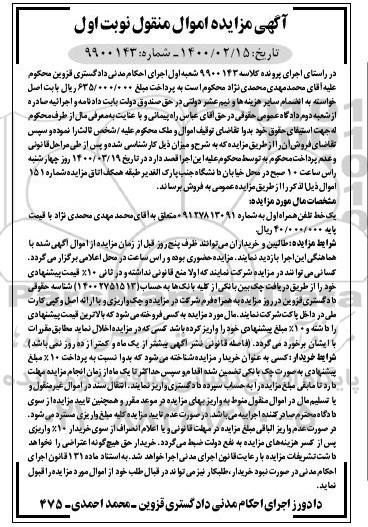 آگهی مزایده اموال منقول نوبت اول
تاریخ: ۱۴۰۰/۰۲/۱۵ـ شماره: ۹۹۰۰۱۴۳
در راستای اجرای پرونده کلاسه ۹۹۰۰۱۴۳ شعبه اول اجرای احکام مدنی دادگستری قزوین محکوم
علیه آقای محمدمهدی محمدی نژاد محکوم است به پرداخت مبلغ ۶۳۵/۰۰۰/۰۰۰ ریال بابت اصل
خواسته به انضمام سایر هزینه ها و نیم عشر دولتی در حق صندوق دولت بابت دادنامه و اجرائیه صادره
از شعبه دوم دادگاه عمومی حقوقی در حق آقای عباس راه پیمائی و با عنایت به معرفی مال از طرف محکوم
له جهت استیفای حقوق خود بدوا تقاضای توقیف اموال و ملک محکوم علیه/شخص ثالث را نموده و سپس
تقاضای فروش آن را از طریق مزایده که به شرح و میزان ذیل کارشناسی شده و پس از طی مراحل قانونی
و عدم پرداخت محکوم به توسط محکوم علیه این اجرا قصد دارد در تاریخ ۱۴۰۰/۰۳/۱۹ روز چهارشنبه
راس ساعت ۱۰ صبح در محل خیابان دانشگاه جنب پارک الغدیر طبقه همکف اتاق مزایده شماره ۱۵۱
اموال ذیل الذکر را از طریق مزایده عمومی به فروش برساند.
مشخصات مال مورد مزایده:
یک خط تلفن همراه اول به شماره ۰۹۱۲۷۸۱۳۰۹۱ متعلق به آقای محمد مهدی محمدی نژاد با قیمت
پایه ۴۰/۰۰۰/۰۰۰ ریال.
شرایط مزایده: طالبین و خریداران می توانند ظرف پنج روز قبل از زمان مزایده از اموال آگهی شده با
هماهنگی این اجرا بازدید نمایند. مزایده حضوری بوده و راس ساعت در محل اعلامی برگزار می گردد.
کسانی می توانند در مزایده شرکت نمایند که اولا منع قانونی نداشته و در ثانی ۱۰٪ قیمت پیشنهادی
خود را از طریق دریافت چک بین بانکی از کلیه بانک ها به حساب (۱۴۰۰۲۷۵۱۵۱۳) شناسه حقوقی
دادگستری قزوین در روز مزایده به همراه فرم شرکت در مزایده و چک واریزی و با ارائه اصل و کپی کارت
ملی در داخل پاکت شرکت نمایند. مال مورد مزایده به کسی فروخته می شود که بالاترین قیمت پیشنهادی
را داشته و ۱۰٪ مبلغ پیشنهادی خود را واریز کرده باشد کسی که در مزایده اخلال نماید مطابق مقررات
با ایشان برخورد می گردد. (فاصله قانونی نشر آگهی بیشتر از یک ماه و کمتر از ده روز نمی باشد)
شرایط خریدار: کسی به عنوان خریدار مزایده شناخته می شود که بدوا نسبت به پرداخت ۱۰٪ مبلغ
پیشنهادی به صورت چک بانکی تضمین شده اقدام و سپس حداکثر تا یک ماه از زمان انجام مزایده مهلت
دارد تا مابقی مبلغ مزایده را به حساب سپرده دادگستری واریز نمایند. انتقال سند در اموال غیر منقول و
یا تسلیم مال در اموال منقول منوط به واریز بهای مزایده در موعد مقرر و همچنین تایید مزایده از سوی
دادگاه محترم صادر کننده اجرائیه می باشد. در صورت عدم تایید مزایده کلیه مبلغ واریزی مسترد می شود.
در صورت عدم واریز الباقی مبلغ مزایده در مهلت قانونی و یا اعلام انصراف از سوی خریدار ۱۰٪ واریزی
پس از کسر هزینه های مزایده به نفع دولت ضبط می گردد. خریدار حق هیچ گونه اعتراضی را نخواهد
داشت تشریفات مزایده با رعایت قانون اجرای مدنی اجرا خواهد شد. به استناد ماده ۱۳۱ قانون اجرای
احکام مدنی در صورت نبود خریدار، طلبکار نیز می تواند در قبال طلب خود از اموال مورد مزایده را قبول
نماید.
دادورز اجرای احکام مدنی دادگستری قزوین ـ محمد احمدی ـ ۴۷۵